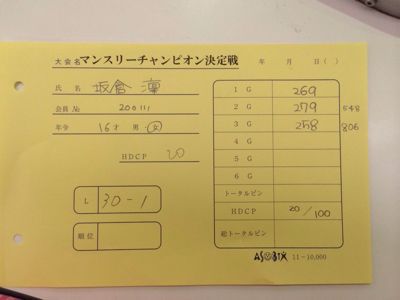 大会名 マンスリーチャンピオン決定戦 年 月 日( )
氏名 坂倉 凜
会員No. 200111
年令 16才 男・女
HDCP 20
L 30-1
順位
1 G 269
2 G 279 548
3 G 258 806
4 G
5 G
6 G
トータルピン
HDCP 20/100
総トータルピン
ASOBIX 11-10,000